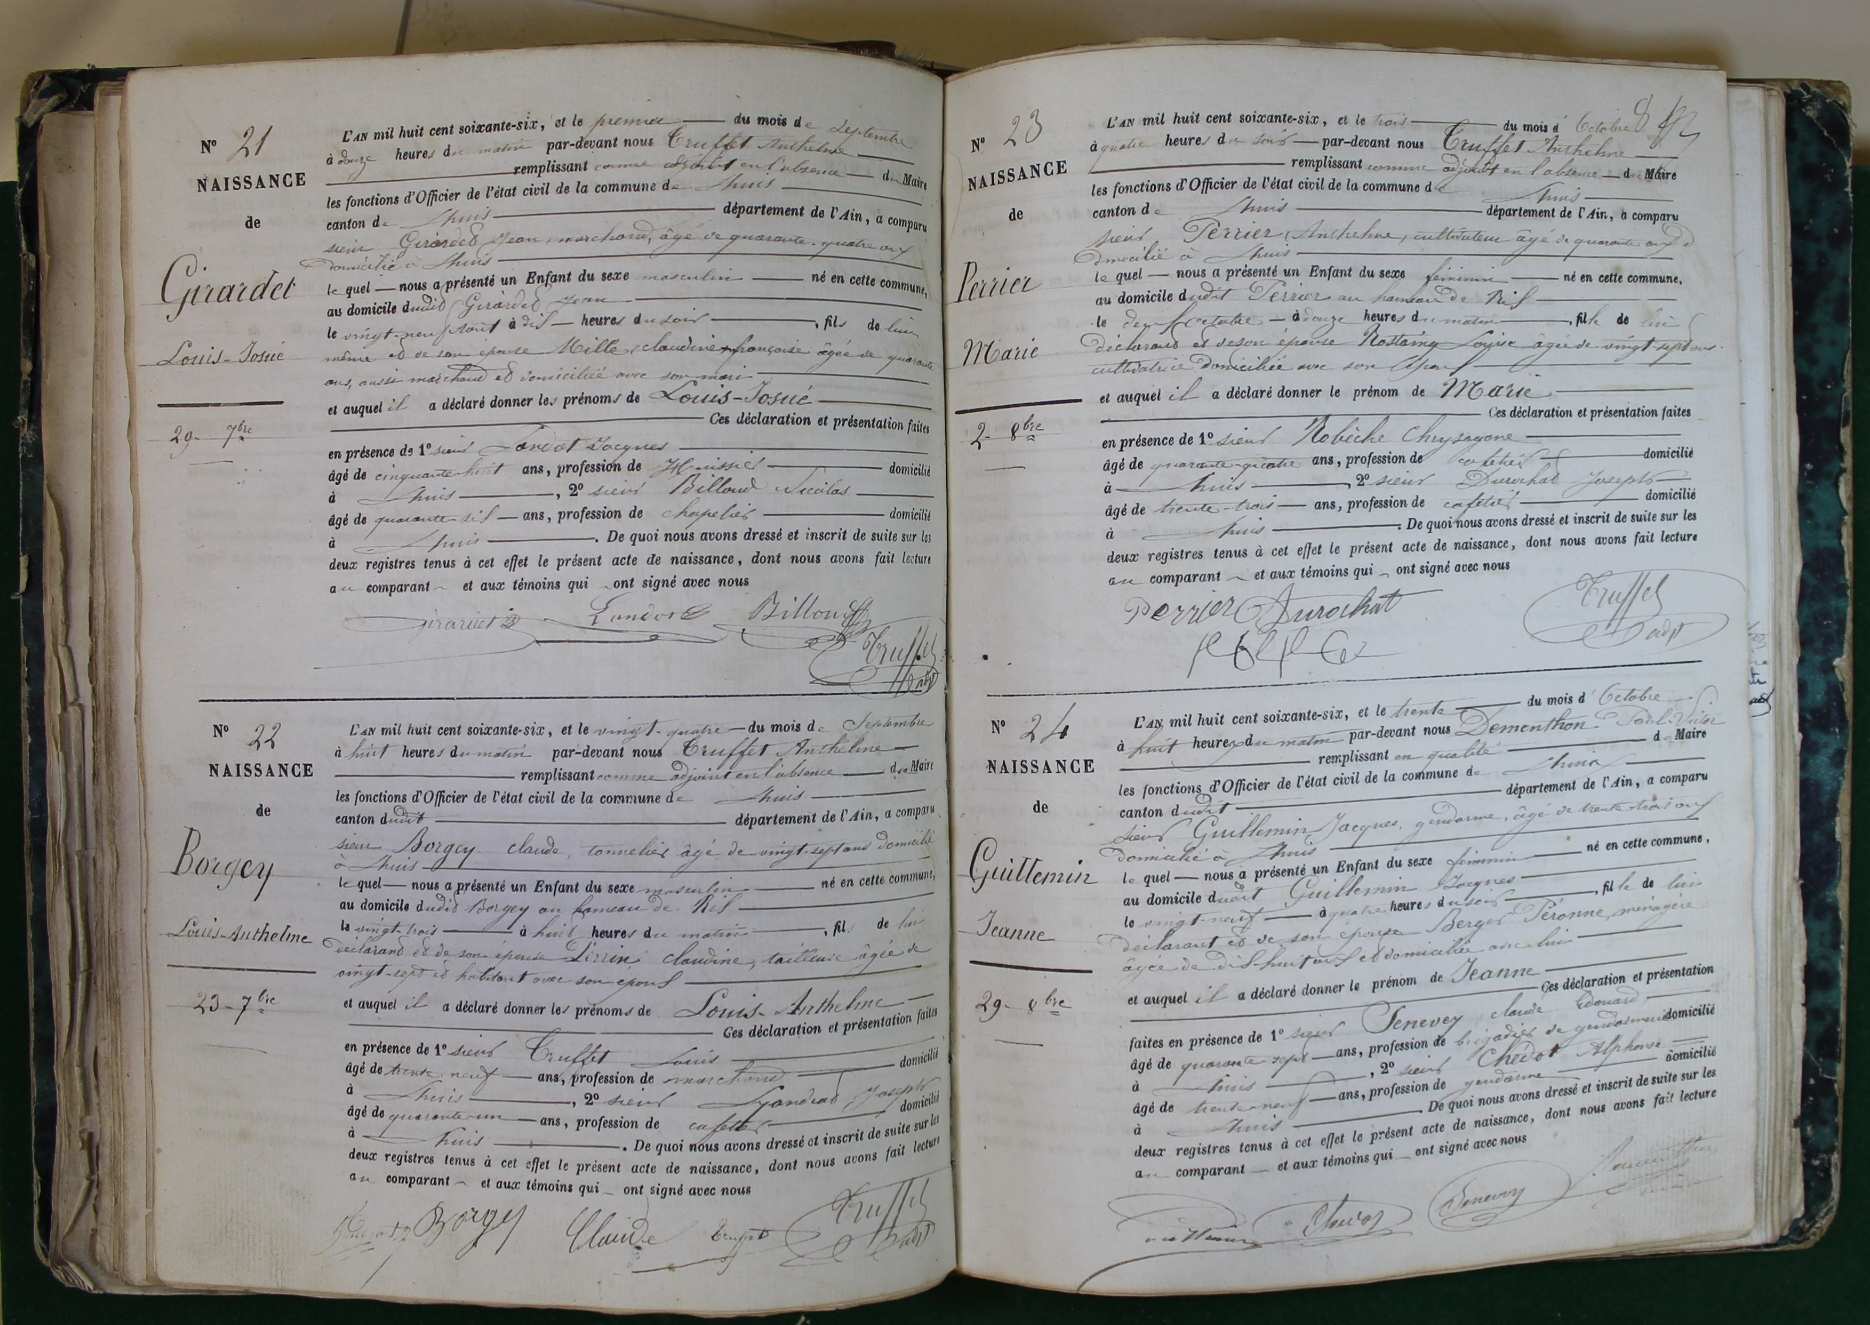 N° 21
NAISSANCE
de
Girardet
Louis-Josué
29 - 7bre
L'AN mil huit cent soixante-six, et le premier du mois de Septembre
à douze heures du matin par-devant nous Truffet Anthelme
remplissant comme adjoint en l'absence du Maire
les fonctions d'Officier de l'état civil de la commune de Lhuis
canton de Lhuis département de l'Ain, a comparu
sieur Girardet Jean, marchand, âgé de quarante-quatre ans
domicilié à Lhuis
le quel nous a présenté un Enfant du sexe masculin né en cette commune,
au domicile dudit Girardet Jean
le vingt-neuf août à dix heures du soir, fils de lui
même et de son épouse Mille, claudine françoise âgée de quarante
ans, aussi marchand et domiciliée avec son mari
et auquel il a déclaré donner les prénoms de Louis-Josué
Ces déclaration et présentation faites
en présence de 1° sieur Jacques
âgé de cinquante-huit ans, profession de Huissier domicilié
à Lhuis, 2° sieur Billoud Nicolas
âgé de quarante-six ans, profession de chapelier domicilié
à Lhuis. De quoi nous avons dressé et inscrit de suite sur les
deux registres tenus à cet effet le présent acte de naissance, dont nous avons fait lecture
au comparant et aux témoins qui ont signé avec nous
Girardet Billoud
Truffet
adjt
N° 22
NAISSANCE
de
Borgey
Louis-Anthelme
23 - 7bre
L'AN mil huit cent soixante-six, et le vingt-quatre du mois de Septembre
à huit heures du matin par-devant nous Truffet Anthelme
remplissant comme adjoint en l'absence du Maire
les fonctions d'Officier de l'état civil de la commune de Lhuis
canton dudit département de l'Ain, a comparu
sieur Borgey claude, tonnelier âgé de vingt-sept ans domicilié
à Lhuis
le quel nous a présenté un Enfant du sexe masculin né en cette commune,
au domicile dudit Borgey au hameau de Rix
le vingt trois à huit heures du matin, fils de lui
déclarant et de son épouse claudine, tailleuse âgée de
vingt-sept et habitant avec son époux
et auquel il a déclaré donner les prénoms de Louis-Anthelme
Ces déclaration et présentation faites
en présence de 1° sieur Truffet Louis
âgé de trente neuf ans, profession de marchand domicilié
à Lhuis, 2° sieur Joseph
âgé de quarante-un ans, profession de cafetier domicilié
à Lhuis. De quoi nous avons dressé et inscrit de suite sur les
deux registres tenus à cet effet le présent acte de naissance, dont nous avons fait lecture
au comparant et aux témoins qui ont signé avec nous
Borgey Claude Truffet
adjt
N° 23
NAISSANCE
de
Perrier
Marie
2 - 8bre
L'AN mil huit cent soixante-six, et le trois du mois d'Octobre
à quatre heures du soir par-devant nous Truffet Anthelme
remplissant comme adjoint en l'absence du Maire
les fonctions d'Officier de l'état civil de la commune de Lhuis
canton de Lhuis département de l'Ain, a comparu
sieur Perrier Anthelme, cultivateur âgé de quarante ans
domicilié à Lhuis
le quel nous a présenté un Enfant du sexe féminin né en cette commune,
au domicile dudit Perrier au hameau de Rix
le deux octobre à douze heures du matin, fille de lui
déclarant et de son épouse Rostaing Louise âgée de vingt-sept ans
cultivatrice domiciliée avec son époux
et auquel il a déclaré donner le prénom de Marie
Ces déclaration et présentation faites
en présence de 1° sieur Robèche
âgé de quarante-quatre ans, profession de cafetier domicilié
à Lhuis, 2° sieur Durochat Joseph
âgé de trente-trois ans, profession de cafetier domicilié
à Lhuis. De quoi nous avons dressé et inscrit de suite sur les
deux registres tenus à cet effet le présent acte de naissance, dont nous avons fait lecture
au comparant et aux témoins qui ont signé avec nous
Perrier Durochat Truffet
adjt
N° 24
NAISSANCE
de
Guillemin
Jeanne
29 - 8bre
L'AN mil huit cent soixante-six, et le trente du mois d'Octobre
à huit heures du matin par-devant nous Dementhon
remplissant en qualité de Maire
les fonctions d'Officier de l'état civil de la commune de Lhuis
canton dudit département de l'Ain, a comparu
sieur Guillemin Jacques, gendarme, âgé de trente-trois ans
domicilié à Lhuis
le quel nous a présenté un Enfant du sexe féminin né en cette commune,
au domicile dudit Guillemin Jacques
le vingt-neuf à quatre heures du soir, fille de lui
déclarant et de son épouse Berger Péronne, ménagère
âgée de dix-huit ans et domiciliée avec lui
et auquel il a déclaré donner le prénom de Jeanne
Ces déclaration et présentation
faites en présence de 1° sieur Penevey claude Edouard
âgé de quarante sept ans, profession de brigadier de gendarmerie domicilié
à Lhuis, 2° sieur Alphonse
âgé de trente-neuf ans, profession de gendarme domicilié
à Lhuis. De quoi nous avons dressé et inscrit de suite sur les
deux registres tenus à cet effet le présent acte de naissance, dont nous avons fait lecture
au comparant et aux témoins qui ont signé avec nous
Guillemin Penevey